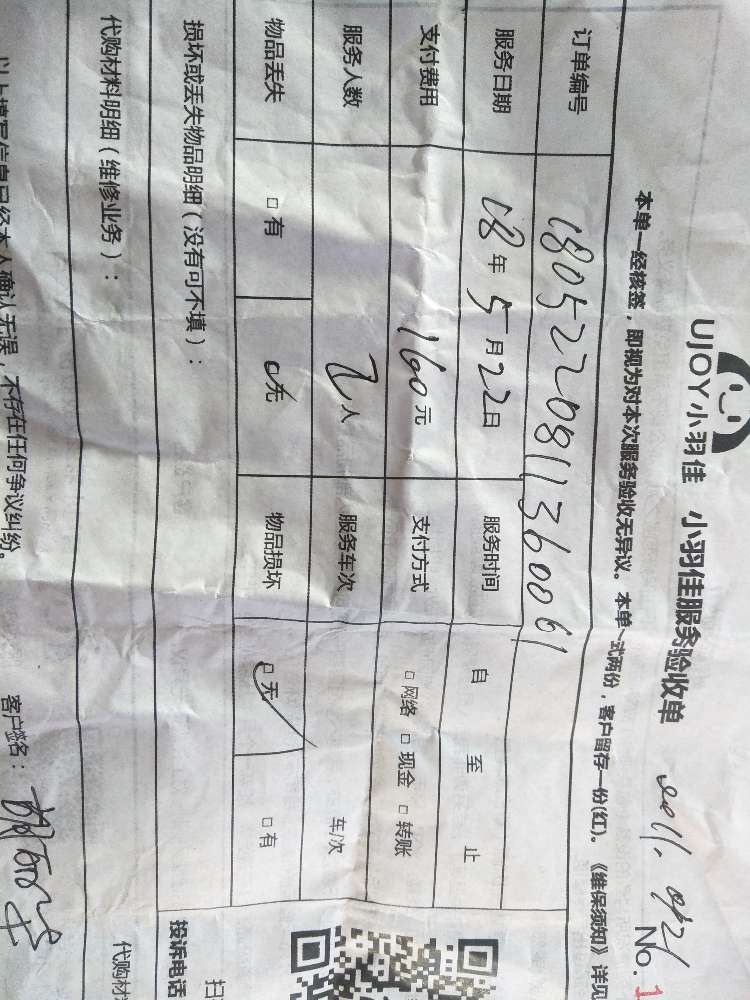 UJOY小羽佳 小羽佳服务验收单
No. 1
本单一经核签，即视为对本次服务验收无异议。本单一式两份，客户留存一份(红)。《维保须知》详见
订单编号 1805220811360061
服务日期 18年5月22日 服务时间 自 至 止
支付费用 160元 支付方式 □网络 □现金 □转账
服务人数 2人 服务车次 车/次
物品丢失 □有 □无 物品损坏 □无 □有
损坏或丢失物品明细（没有可不填）：
投诉电话
代购材料明细（维修业务）：
代购材
以上填写信息已经本人确认无误，不存在任何争议纠纷。
客户签名：